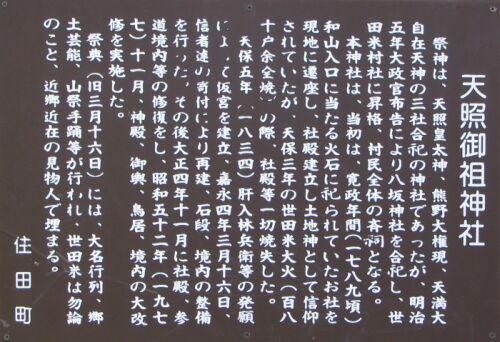 天照御祖神社
祭神は、天照皇太神、熊野大権現、天満大
自在天神の三社合祀の神社であったが、明治
五年大政官布告により八坂神社を合祀し、世
田米村社に昇格、村民全体の斉祠となる。
本神社は、当初は、寛政年間(一七八九頃)
和山入口に当たる火石に祀られていたお社を
現地に遷座し、社殿建立し土地神として信仰
されていたが、天保三年の世田米大火(百八
十戸余全焼)の際、社殿等一切焼失した。
天保五年(一八三四)肝入林兵衛等の発願
によって仮宮を建立、嘉永四年三月十六日、
信者達の寄付により再建、石段、境内の整備
を行った、その後大正四年十一月に社殿、参
道境内等の修復をし、昭和五十二年(一九七
七)十一月、神殿、御輿、鳥居、境内の大改
修を実施した。
祭典(旧三月十六日)には、大名行列、郷
土芸能、山祭手踊等が行われ、世田米は勿論
のこと、近郷近在の見物人で埋まる。
住田町